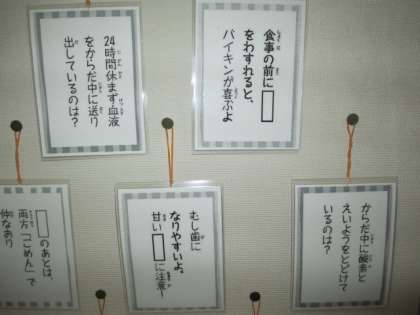 24時間休まず血液
をからだ中に送り
出しているのは?
食事の前に□
をわすれると、
バイキンが喜ぶよ
□のあとは、
両方「ごめん」で
仲なおり
むし歯に
なりやすいよ。
甘い□に注意!
からだ中に酸素と
えいようをとどけて
いるのは?